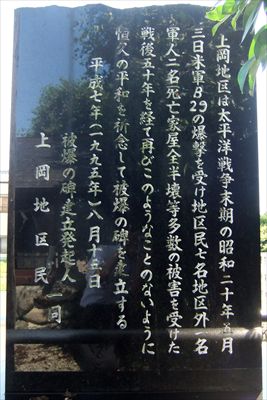 上岡地区は太平洋戦争末期の昭和二十年五月
三日米軍B29の爆撃を受け地区民七名地区外一名
軍人二名死亡家屋全半壊等多数の被害を受けた
戦後五十年を経て再びこのようなことのないように
恒久の平和を祈念して被爆の碑を建立する
平成七年(一九九五年)八月十五日
被爆の碑建立発起人
上岡地区民一同